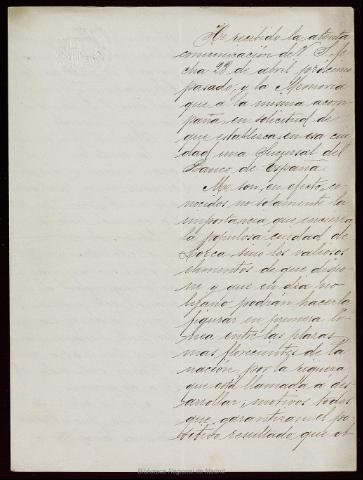 He recibido la atenta
comunicación de V. S. fe
cha 28 de abril próximo
pasado, y la Memoria
que á la misma acom
paña en solicitud de
que establezca en esa ciu
dad una Sucursal del
Banco de España.
Me son, en efecto, co
nocidos no solamente la
importancia que encierra
la populosa ciudad de
Lorca sino los valiosos
elementos de que dispo
ne y que en día no
lejano podrán hacerla
figurar en primera lí
nea entre las plazas
mas florecientes de la
nación, por la riqueza
que está llamada á des
arrollar, motivos todos
que garantizan el po
sitivo resultado que ob
Biblioteca Regional de Murcia